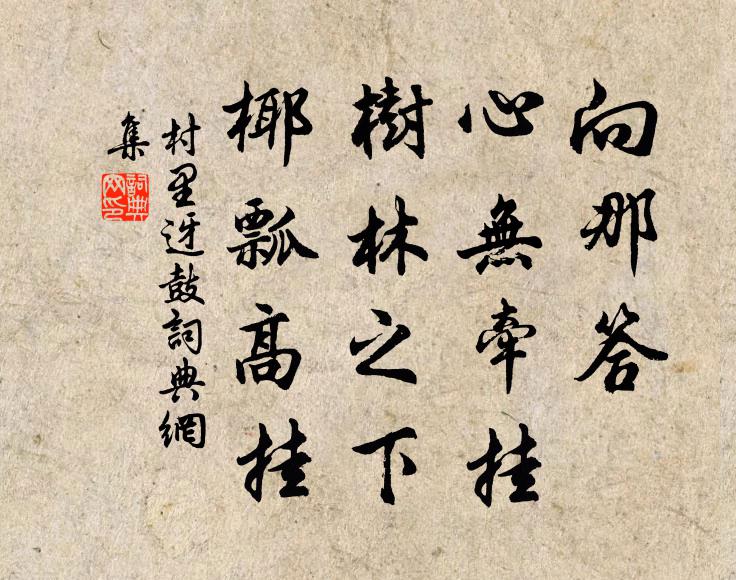 向那答
心無牽挂
樹林之下
椰瓢高挂
村里迓鼓詞典網
集
詞典
网印